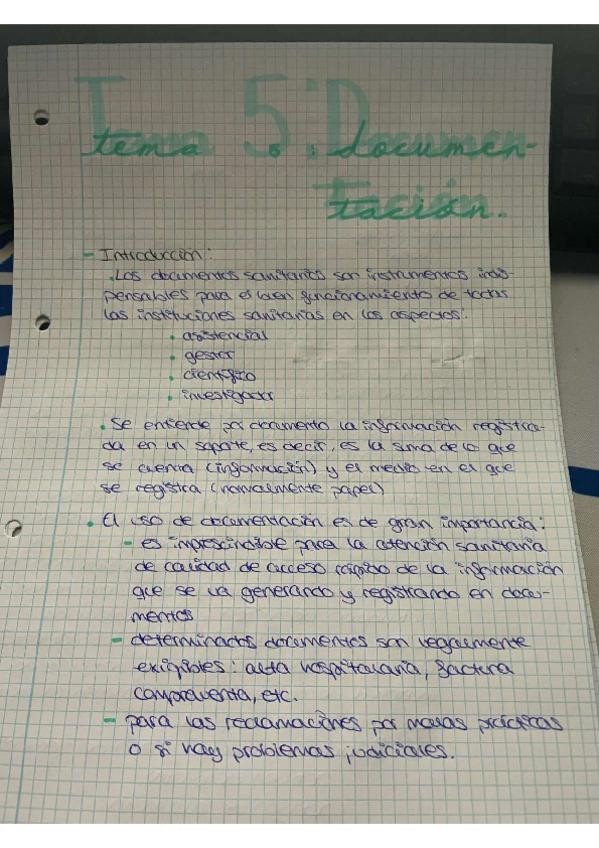 Tema 5: Documen-
tación.
- Introducción:
· Los documentos sanitarios son instrumentos indis-
pensables para el buen funcionamiento de todas
las instituciones sanitarias en los aspectos:
· asistencial
· gestor
· científico
· investigador
· Se entiende por documento la información registra-
da en un soporte, es decir, es la suma de lo que
se cuenta (información) y el medio en el que
se registra (normalmente papel)
· El uso de documentación es de gran importancia:
- es imprescindible para la atención sanitaria
de calidad de acceso rápido de la información
que se va generando y registrando en docu-
mentos
- determinados documentos son legalmente
exigibles: alta hospitalaria, factura
compraventa, etc.
- para las reclamaciones por malas prácticas
o si hay problemas judiciales.